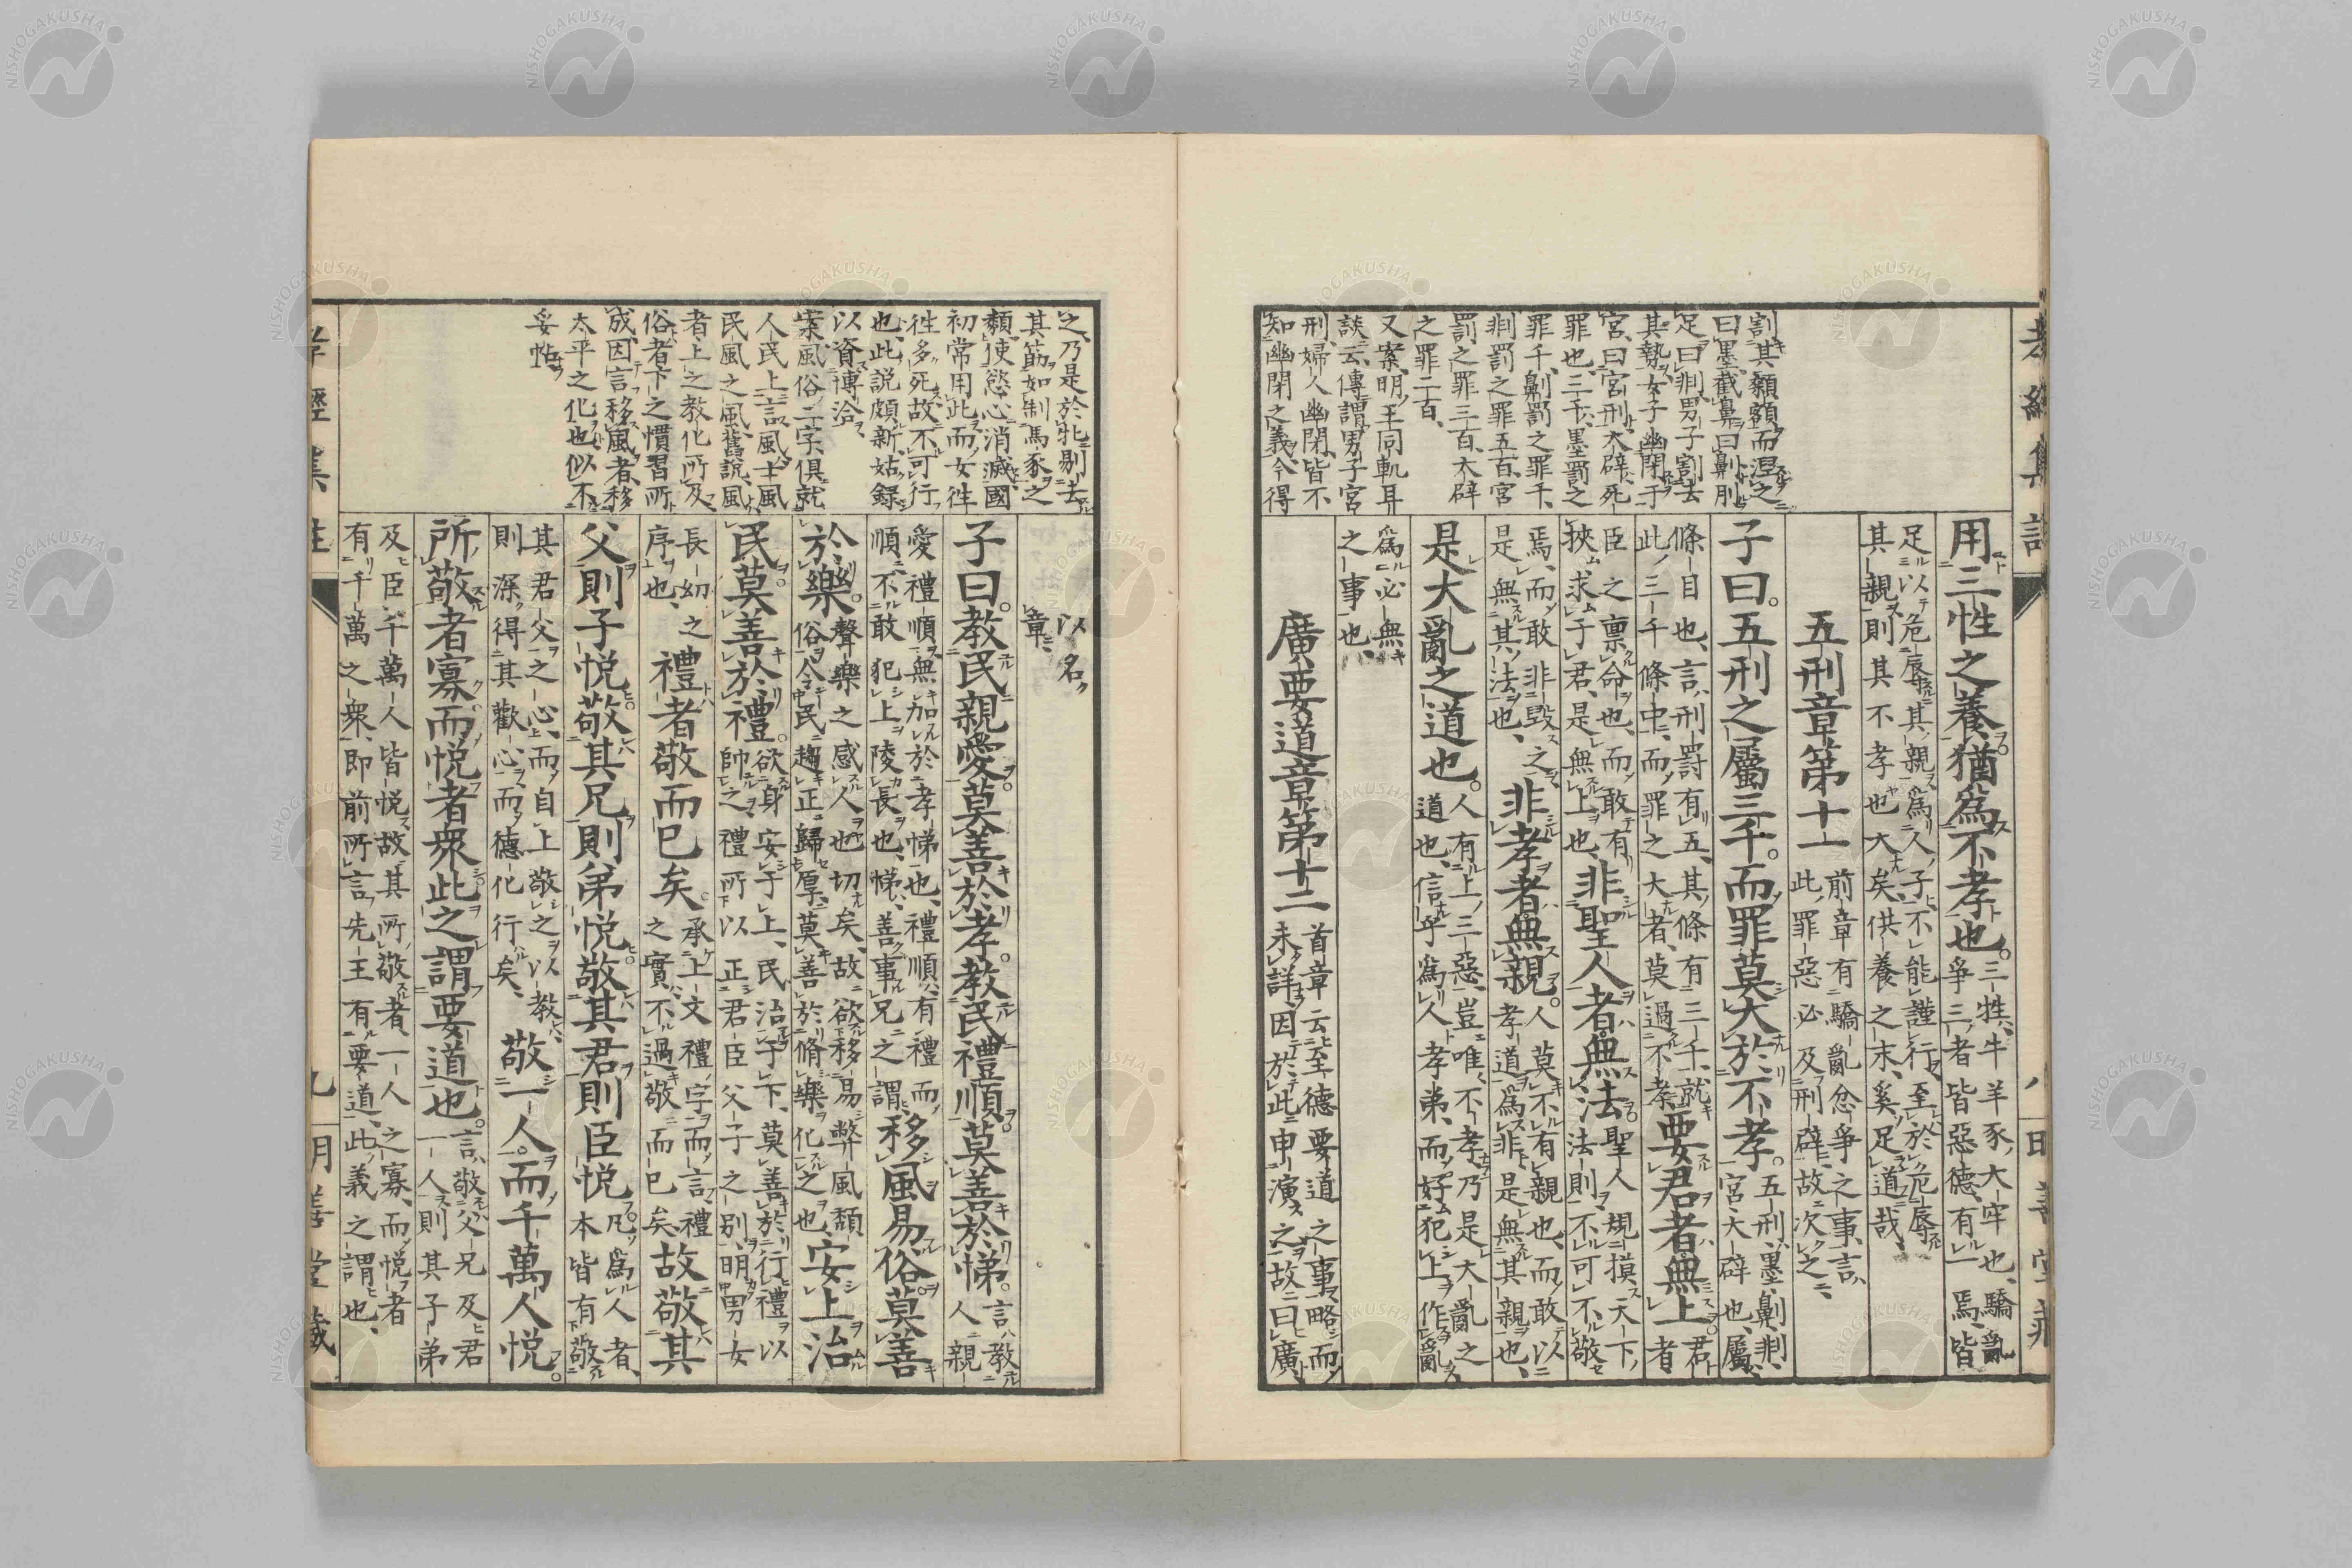 割其顙額而涅之
曰墨截鼻曰劓刖
足曰剕男子割去
其勢女子幽閉于
宮曰宮刑大辟死
罪也三千墨罰之
罪千劓罰之罪千
剕罰之罪五百宮
罰之罪三百大辟
之罪二百
又案明王同軌耳
談云傳謂男子宮
刑婦人幽閉皆不
知幽閉之義今得
用三牲之養猶為不孝也三牲牛羊豕大牢也驕亂
爭三者皆惡德有一焉皆
足以危辱其親為人子不能謹行至於危辱
其親則其不孝也大矣供養之末奚足道哉
五刑章第十一前章有驕亂忿爭之事言
此罪惡必及刑辟故次之
子曰五刑之屬三千而罪莫大於不孝五刑墨劓剕
宮大辟也屬
條目也言刑罰有五其條有三千就
此三千條中而罪之大者莫過不孝要君者無上君者
臣之稟命也而敢有
挾求于君是無上也非聖人者無法聖人規摸天下
法則不可不敬
焉而敢非毀之
是無其法也非孝者無親人莫不有親也而敢以
孝道為非是無其親也
是大亂之道也人有上三惡豈唯不孝乃是大亂之
道也信乎為人孝弟而好犯上作亂
為必無
之事也
廣要道章第十二首章云至德要道之事略而
未詳因於此申演之故曰廣
之乃是於牝剔去
其筋如制馬豕之
類使慾心消滅國
初常用此而女往
往多死故不可行
也此說頗新姑錄
以資博洽
案風俗二字俱就
人民上言風土風
民風之風舊說風
者上之教化所及
俗者下之慣習所
成因言移風者移
太平之化也似不
妥帖
以名
章
子曰教民親愛莫善於孝教民禮順莫善於悌言教
人親
愛禮順無加於孝悌也禮順有禮而
順不敢犯上陵長也悌善事兄之謂移風易俗莫善
於樂聲樂之感人也切矣故欲移易弊風頹
俗令民趨正歸厚莫善於脩樂化之也安上治
民莫善於禮欲身安于上民治于下莫善於行禮以
帥之禮所以正君臣父子之別明男女
長幼之
序也禮者敬而已矣承上文禮字而言禮
之實不過敬而已矣故敬其
父則子悅敬其兄則弟悅敬其君則臣悅凡為人者
本皆有敬
其君父之心而自上敬之以教
則深得其歡心而德化行矣敬一人而千萬人悅
所敬者寡而悅者眾此之謂要道也言敬父兄及君
一人則其子弟
及臣千萬人皆悅故其所敬者一人之寡而悅者
有千萬之眾即前所言先王有要道此義之謂也